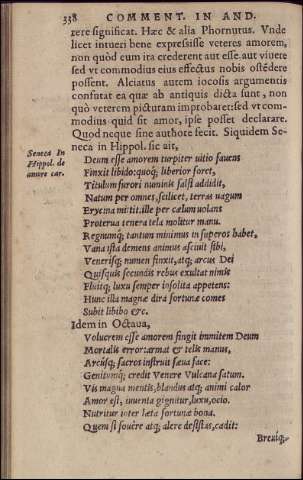 338 COMMENT. IN AND.
rere significat. Hæc & alia Phornutus. Vnde
licet intueri bene expressisse veteres amorem,
non quòd eum ita crederent aut esse aut viuere
sed vt commodius eius effectus nobis ostẽdere
possent. Alciatus autem iocosis argumentis
confutat ea quæ ab antiquis dicta sunt, non
quò veterem picturam improbaret: sed vt com-
modius quid sit amor, ipse posset declarare.
Quod neque sine authore fecit. Siquidem Se-
neca in Hippol. sic ait,
Seneca In
Hippol. de
amore car.
Deum esse amorem turpiter uitio fauens
Finxit libido: quoq; liberior foret,
Titulum furori numinis falsi addidit,
Natum per omnes, scilicet, terras uagum
Erycina mittit. ille per cælum uolans
Proterua tenera tela molitur manu.
Regnumq; tantum minimus in superos habet,
Vana ista demens animus asciuit sibi,
Venerisq; numen finxit, atq; arcus Dei
Quisquis secundis rebus exultat nimis
Fluitq; luxu semper insolita appetens:
Hunc illa magnæ dira fortunæ comes
Subit libido &c.
Idem in Octauia,
Volucrem esse amorem fingit immitem Deum
Mortalis error: armat & telis manus,
Arcusq; sacros instruit sæua face:
Genitumq; credit Venere Vulcano satum.
Vis magna mentis, blandus atq; animi calor
Amor est, iuuenta gignitur, luxu, ocio.
Nutritur inter læta fortunæ bona.
Quem si fouere atq; alere desistas, cadit:
Breuiq;